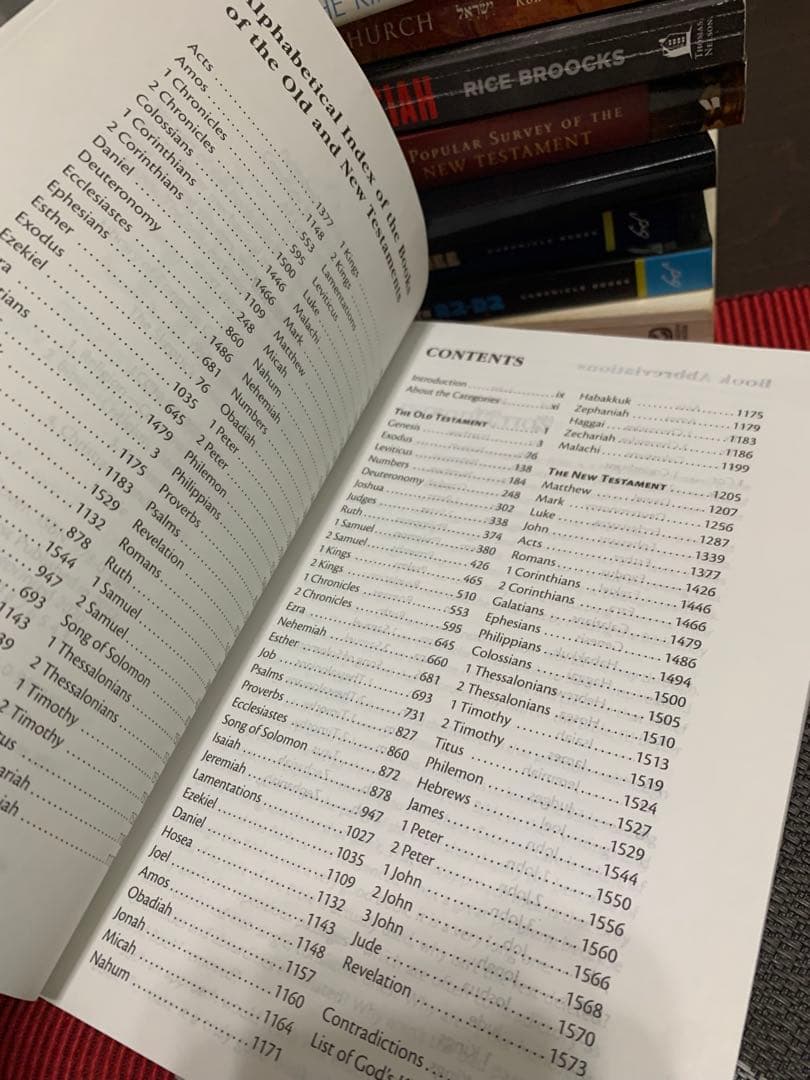 Alphabetical Index of the Books
of the Old and New Testaments
Acts 1377
Amos 1148
1 Chronicles 553
2 Chronicles 595
Colossians 1500
1 Corinthians 1446
2 Corinthians 1466
Daniel 1109
Deuteronomy 248
Ecclesiastes 860
Ephesians 1486
Esther 681
Exodus 76
Ezekiel 1035
ra 645
ians 1479
3
1175
1183
1529
1132
878
1544
947
693
1143
39
1 Kings
2 Kings
Lamentations
Leviticus
Luke
Malachi
Mark
Matthew
Micah
Nahum
Nehemiah
Numbers
Obadiah
1 Peter
2 Peter
Philemon
Philippians
Proverbs
Psalms
Revelation
Romans
Ruth
1 Samuel
2 Samuel
Song of Solomon
1 Thessalonians
2 Thessalonians
1 Timothy
2 Timothy
us
ariah
iah
CHURCH ישראל
IAH RICE BROOCKS THOMAS NELSON
POPULAR SURVEY OF THE
NEW TESTAMENT
CHRONICLE BOOKS
82-B2 CHRONICLE BOOKS
CONTENTS
Introduction ix
About the Categories xi
THE OLD TESTAMENT 1
Genesis 3
Exodus 76
Leviticus 138
Numbers 184
Deuteronomy 248
Joshua 302
Judges 338
Ruth 374
1 Samuel 380
2 Samuel 426
1 Kings 465
2 Kings 510
1 Chronicles 553
2 Chronicles 595
Ezra 645
Nehemiah 660
Esther 681
Job 693
Psalms 731
Proverbs 827
Ecclesiastes 860
Song of Solomon 872
Isaiah 878
Jeremiah 947
Lamentations 1027
Ezekiel 1035
Daniel 1109
Hosea 1132
Joel 1143
Amos 1148
Obadiah 1157
Jonah 1160
Micah 1164
Nahum 1171
Habakkuk 1175
Zephaniah 1179
Haggai 1183
Zechariah 1186
Malachi 1199
THE NEW TESTAMENT 1205
Matthew 1207
Mark 1256
Luke 1287
John 1339
Acts 1377
Romans 1426
1 Corinthians 1446
2 Corinthians 1466
Galatians 1479
Ephesians 1486
Philippians 1494
Colossians 1500
1 Thessalonians 1505
2 Thessalonians 1510
1 Timothy 1513
2 Timothy 1519
Titus 1524
Philemon 1527
Hebrews 1529
James 1544
1 Peter 1550
2 Peter 1556
1 John 1560
2 John 1566
3 John 1568
Jude 1570
Revelation 1573
Contradictions
List of God's